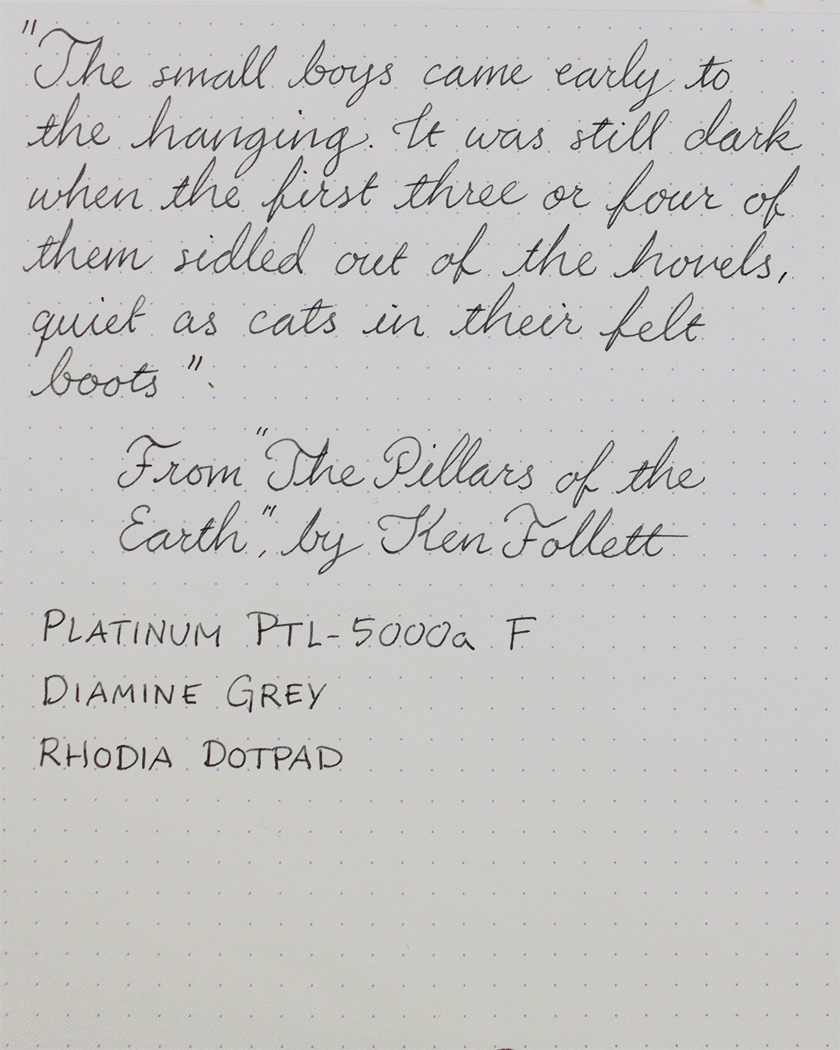 "The small boys came early to
the hanging. It was still dark
when the first three or four of
them sidled out of the hovels,
quiet as cats in their felt
boots".
From "The Pillars of the
Earth", by Ken Follett
PLATINUM PTL-5000a F
DIAMINE GREY
RHODIA DOTPAD